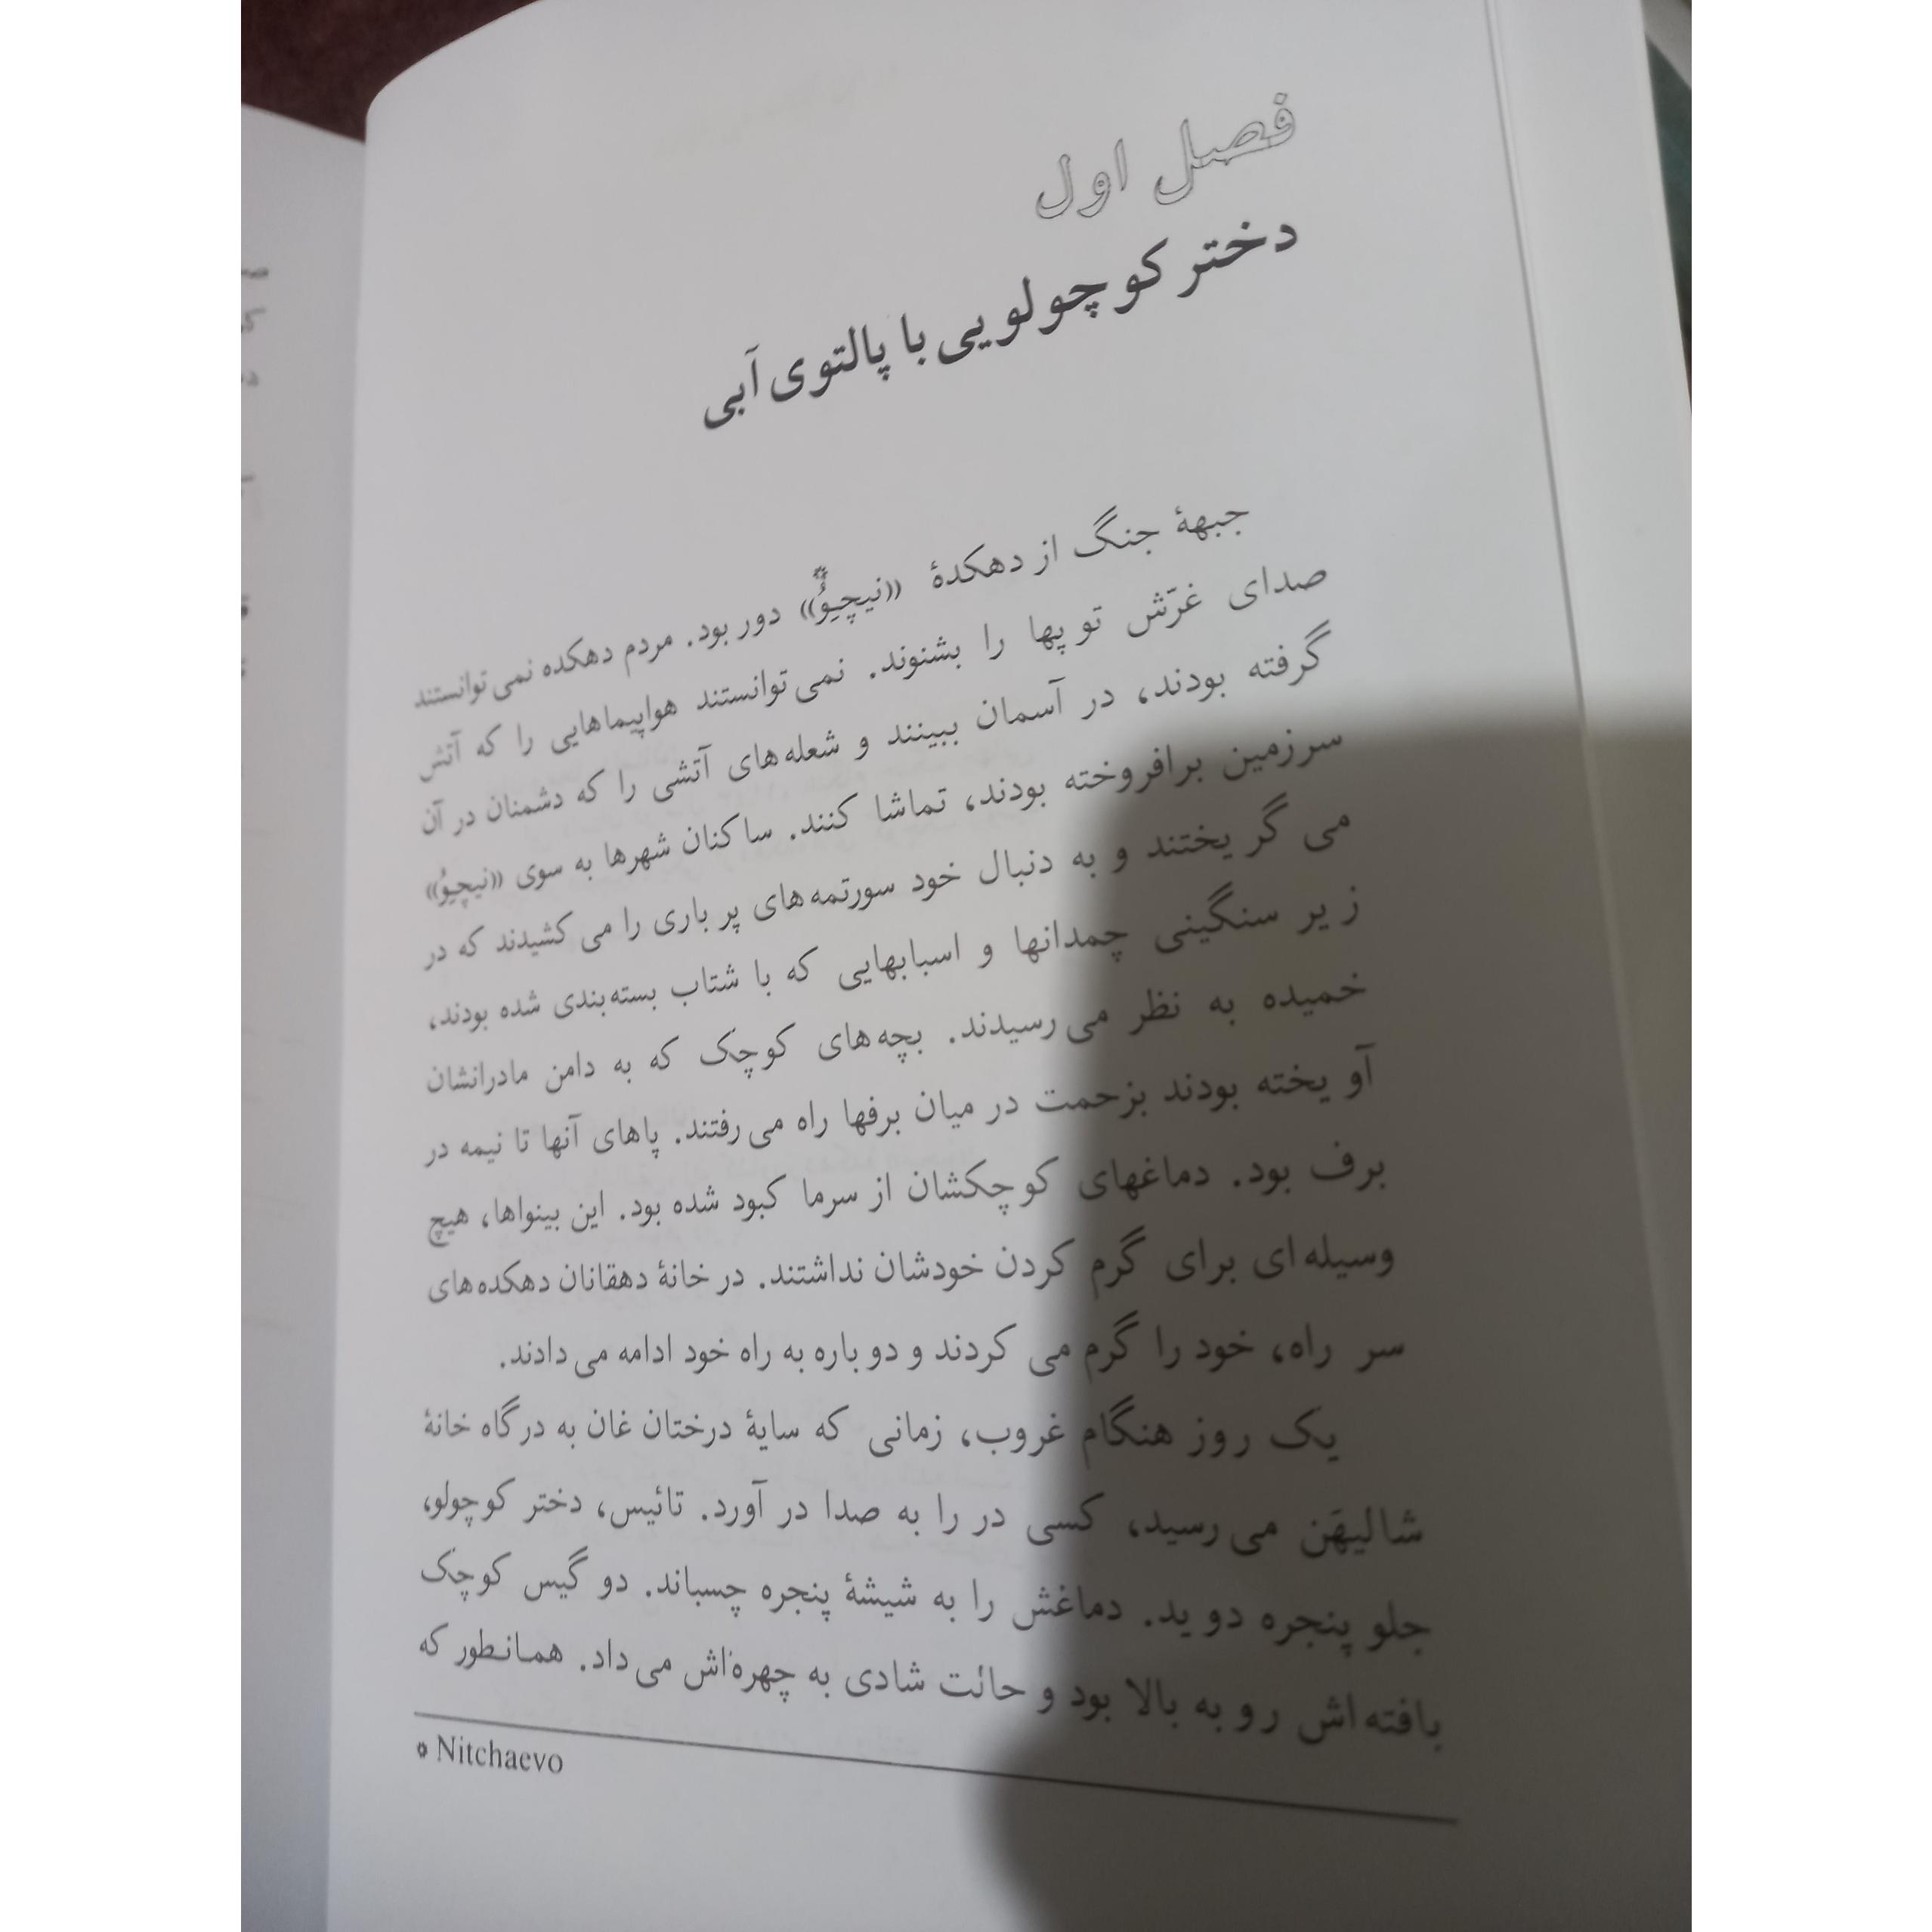 فصل اول
دختر کوچولویی با پالتوی آبی
جبههٔ جنگ از دهکدهٔ «نیچیوُ*» دور بود. مردم دهکده نمی‌توانستند
صدای غرّش توپها را بشنوند. نمی‌توانستند هواپیماهایی را که آتش
گرفته بودند، در آسمان ببینند و شعله‌های آتشی را که دشمنان در آن
سرزمین برافروخته بودند، تماشا کنند. ساکنان شهرها به سوی «نیچیوُ»
می‌گریختند و به دنبال خود سورتمه‌های پر باری را می‌کشیدند که در
زیر سنگینی چمدانها و اسبابهایی که با شتاب بسته‌بندی شده بودند،
خمیده به نظر می‌رسیدند. بچه‌های کوچک که به دامن مادرانشان
آویخته بودند بزحمت در میان برفها راه می‌رفتند. پاهای آنها تا نیمه در
برف بود. دماغهای کوچکشان از سرما کبود شده بود. این بینواها، هیچ
وسیله‌ای برای گرم کردن خودشان نداشتند. در خانهٔ دهقانان دهکده‌های
سر راه، خود را گرم می‌کردند و دوباره به راه خود ادامه می‌دادند.
یک روز هنگام غروب، زمانی که سایهٔ درختان غان به درگاه خانهٔ
شالیهَن می‌رسید، کسی در را به صدا در آورد. تائیس، دختر کوچولو،
جلو پنجره دوید. دماغش را به شیشهٔ پنجره چسباند. دو گیس کوچک
بافته‌اش رو به بالا بود و حالت شادی به چهره‌اش می‌داد. همانطور که
* Nitchaevo